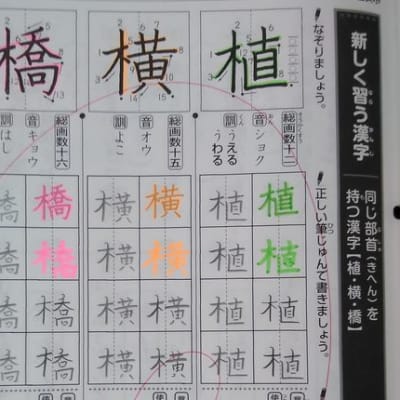 新しく習う漢字
同じ部首(きへん)を
持つ漢字【植・横・橋】
なぞりましょう。
正しい筆じゅんで書きましょう。
植
総画数十二
音 ショク
訓 うえる
うわる
植 植
植 植
植 植
植 植
横
総画数十五
音 オウ
訓 よこ
横 横
横 横
横 横
横 横
橋
総画数十六
音 キョウ
訓 はし
橋 橋
橋 橋
橋 橋
橋 橋